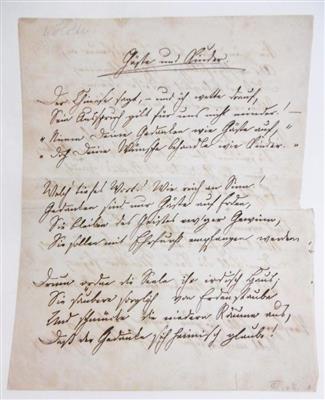 Gäste und Kinder.
Der Chinese sagt, – und ich wette drauf,
Sein Ausspruch gilt für uns nicht minder! –
„Nimm Deine Gedanken wie Gäste auf,"
„Doch Deine Wünsche behandle wie Kinder."
Welch tiefes Wort! Wie reich an Sinn!
Gedanken sind nur Gäste auf Erden,
Sie bleiben des Geistes ew'ger Gewinn,
Sie sollen mit Ehrfurcht empfangen werden
Drum ordne die Seele ihr irdisch Haus,
Sie säubere sorglich von Erdenstaube
Und schmücke die niedern Räume aus,
Daß der Gedanke sich heimisch glaube!